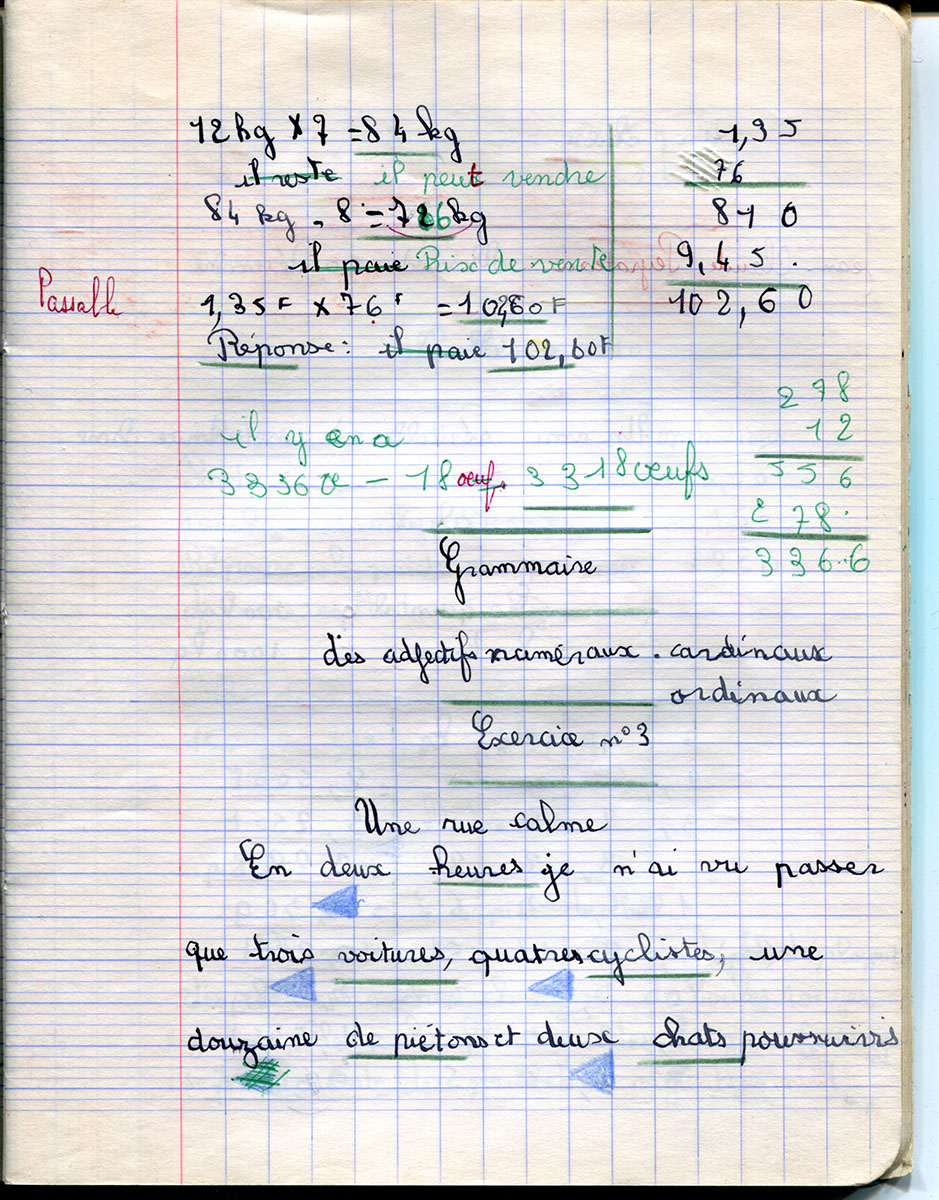 12 kg × 7 = 84 kg
il reste il peut vendre
84 kg - 8 = 76 kg
il paie Prix de vente
Passable
1,35F × 76 = 102,60F
Réponse: il paie 102,60F
1,35
76
8 1 0
9,45.
102,60
il y en a
3336 œ - 18 œuf. 3318 œufs
278
12
556
278.
336.6
Grammaire
des adjectifs numéraux. cardinaux
ordinaux
Exercice n°3
Une rue calme
En deux heures je n'ai vu passer
que trois voitures, quatres cyclistes, une
douzaine de piétons et deux chats poursuivis